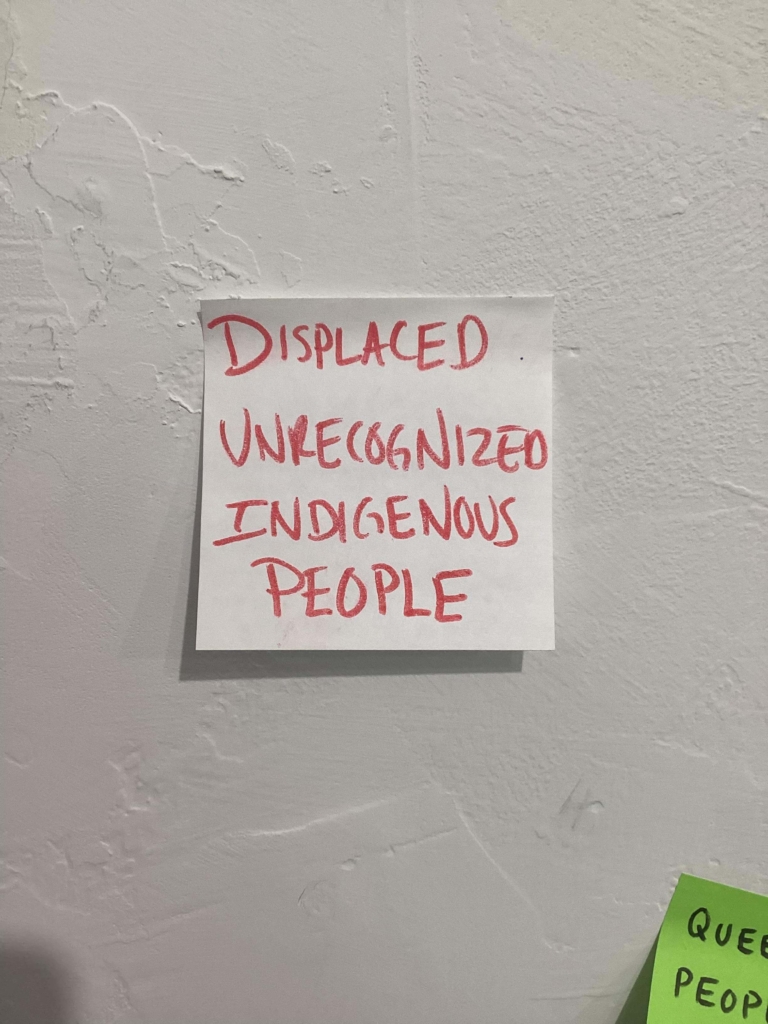 DISPLACED
UNRECOGNIZED
INDIGENOUS
PEOPLE
QUEE
PEOPL